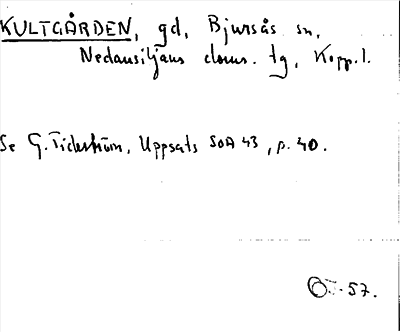 KULTGÅRDEN, gd, Bjursås sn,
Nedansiljans doms. tg, Kopp. l.
Se G. Tideström, Uppsats SOA 43, p. 40.
57.